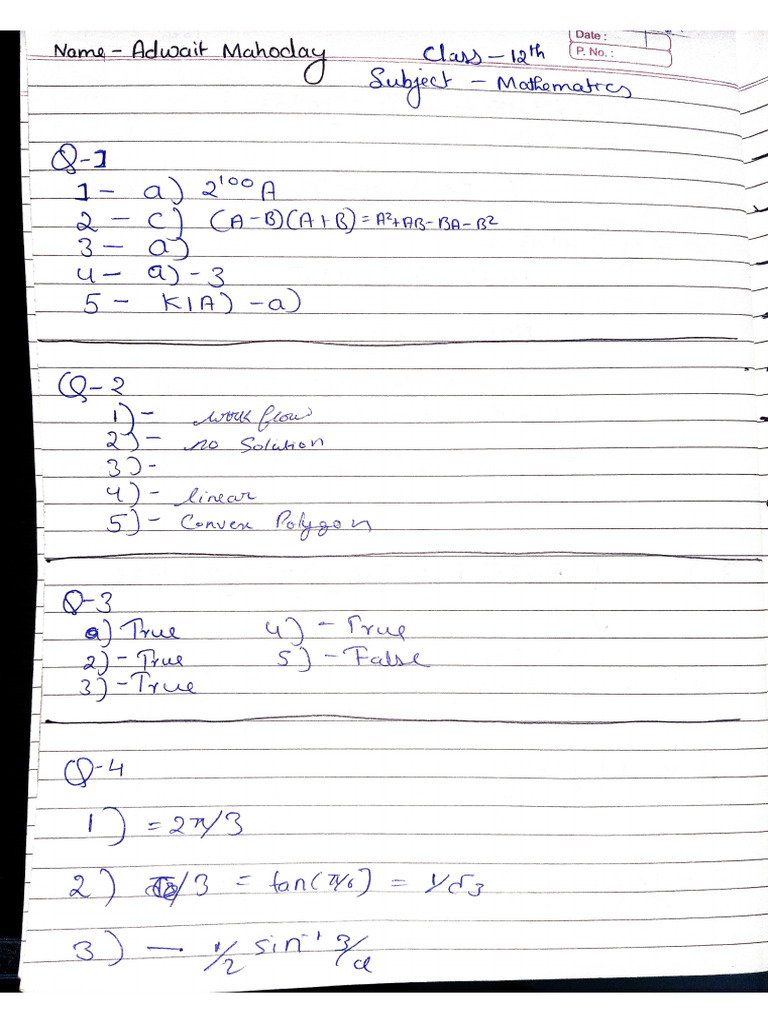 Date :
P. No. :
Name - Adwait Mahoday Class - 12th
Subject - Mathematics
Q-1
1 - a) 2¹⁰⁰A
2 - c) (A-B)(A+B) = A²+AB-BA-B²
3 - a)
4 - a) -3
5 - K|A) -a)
Q-2
1) - work flow
2) - no Solution
3) -
4) - linear
5) - Convex Polygon
Q-3
a) True 4) - True
2) - True 5) - False
3) - True
Q-4
1) = 2π/3
2) /3 = tan(π/6) = 1/√3
3) - 1/2 sin⁻¹ 3/